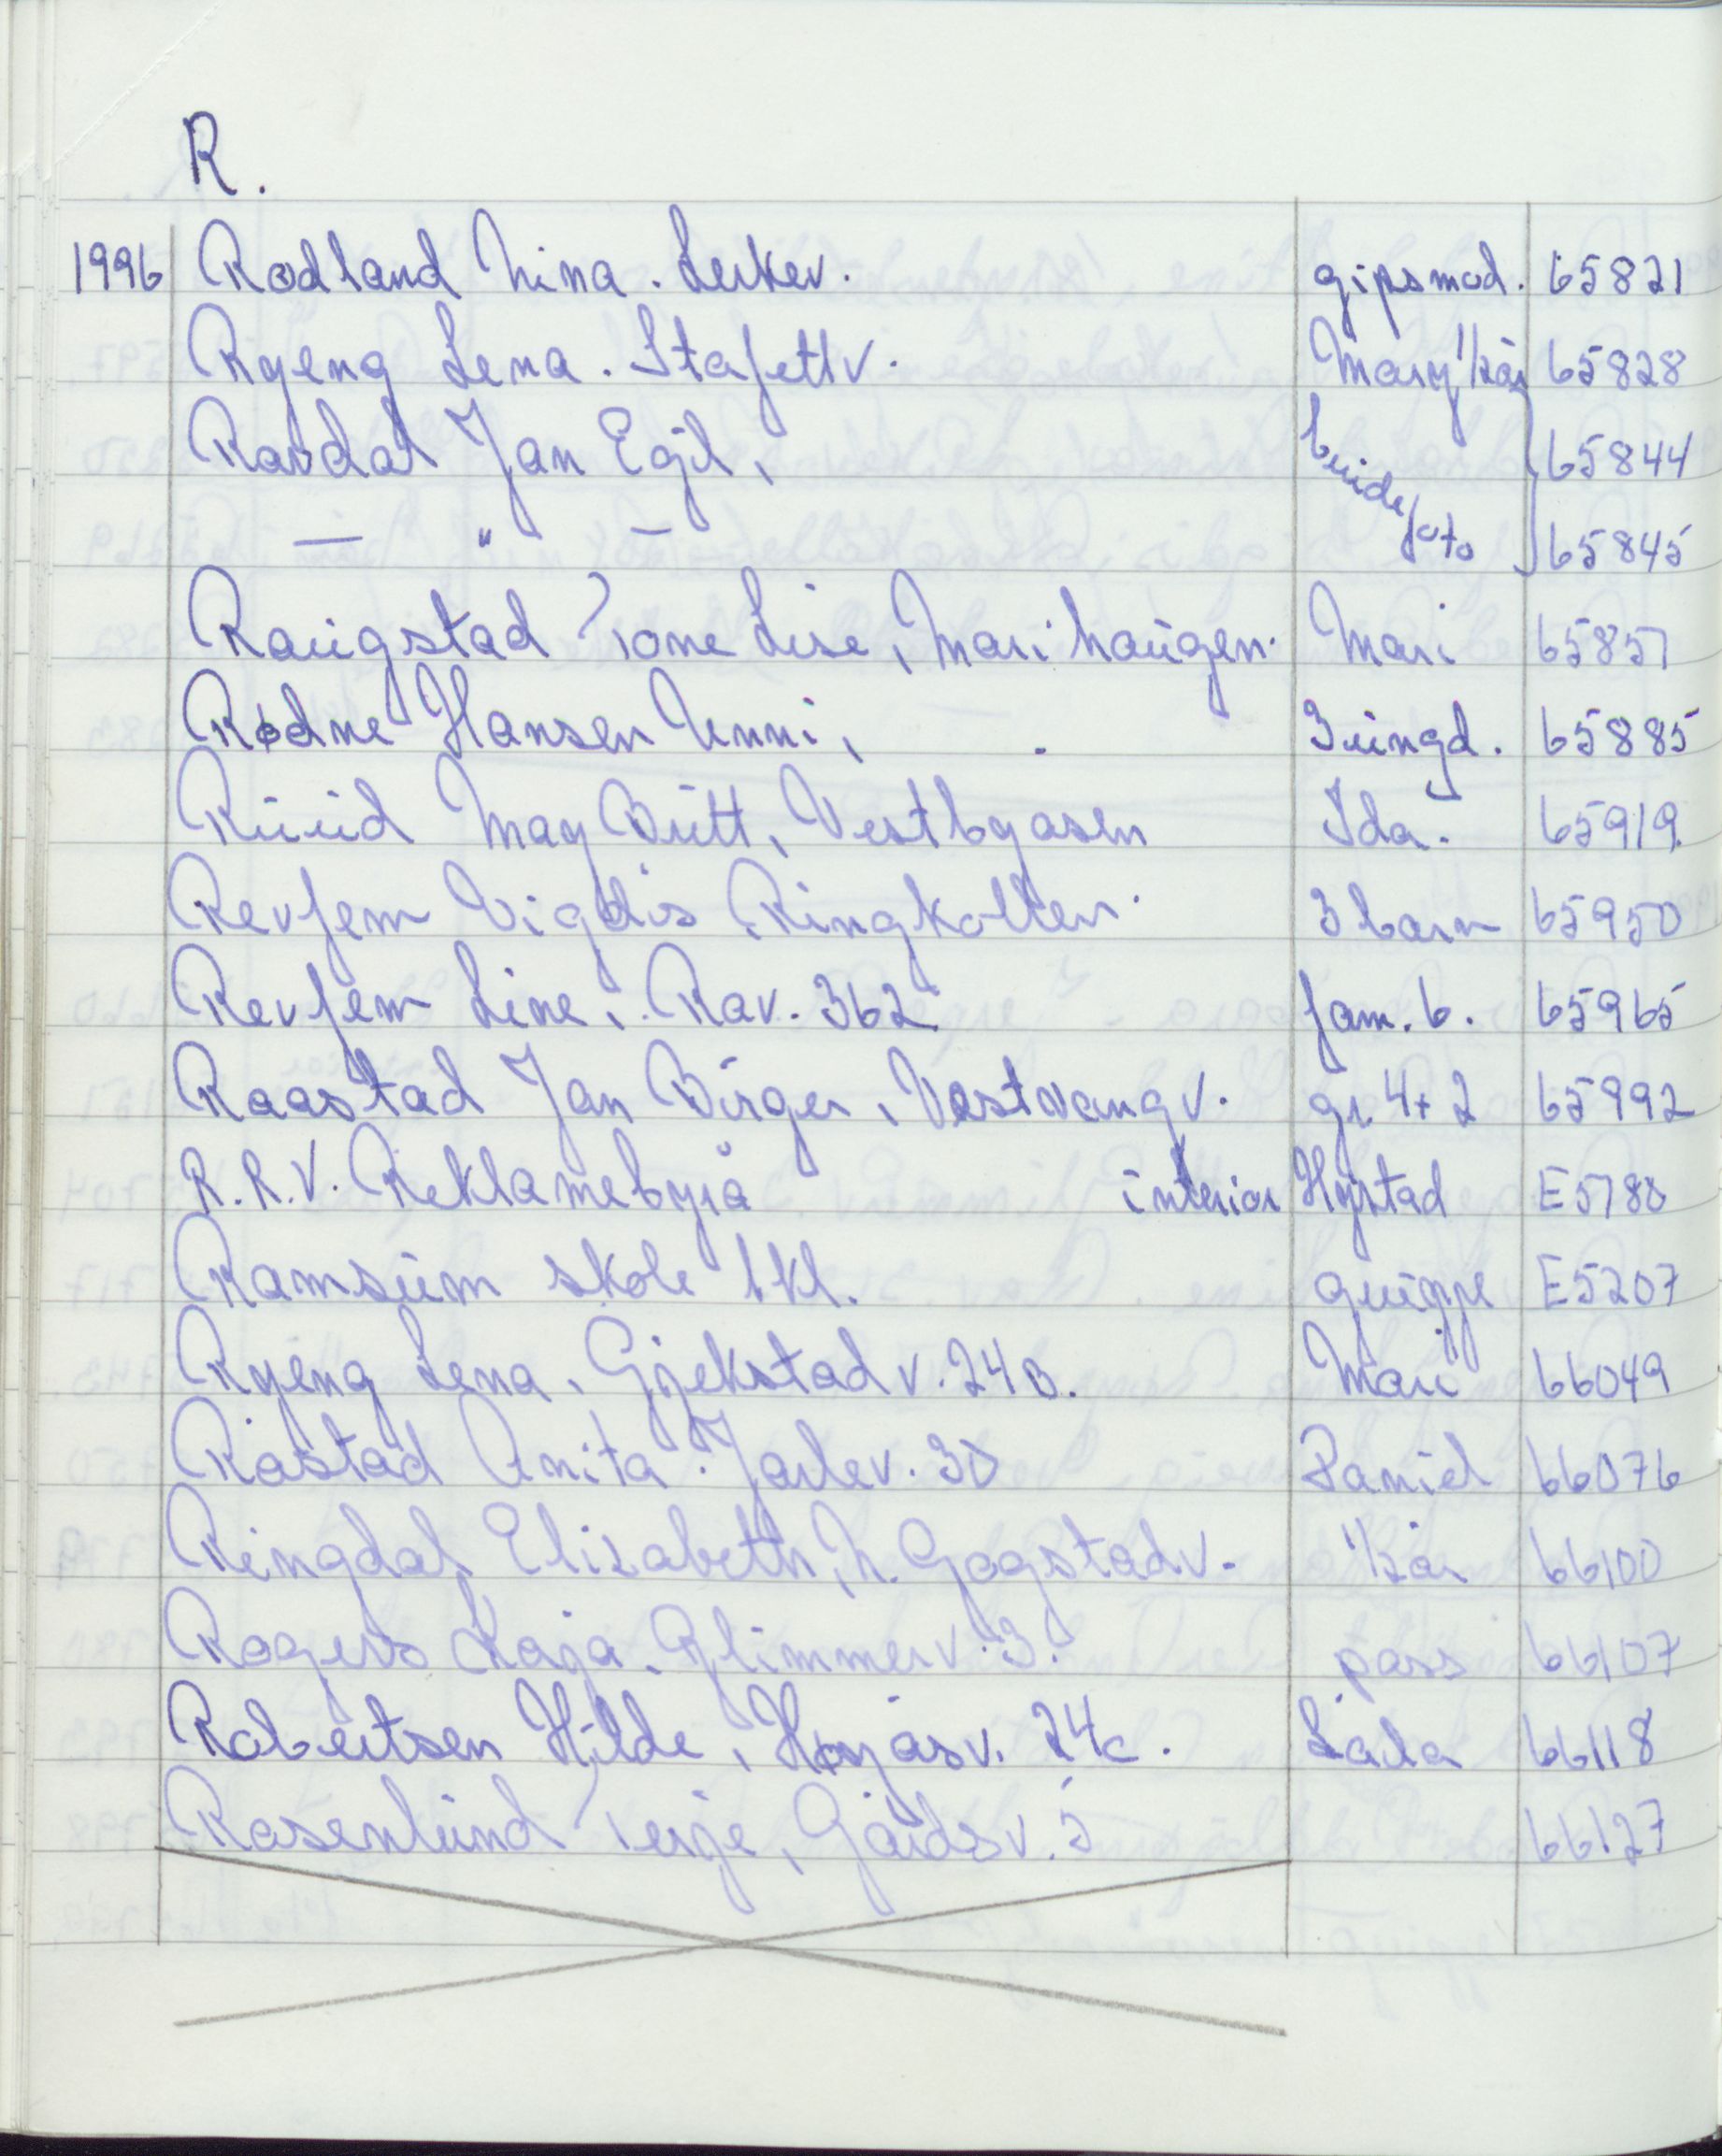 R.
1996 Rødland Nina. Lerkev. gipsmod. 65821
Ryeng Lena. Stafettv. Mary 1/2 år 65828
Ravdal Jan Egil, brudefoto 65844
— " — 65845
Raugstad Tone Lise, Marihaugen. Mari 65851
Rødne Hansen Unni, 3 ungd. 65885
Ruud May Britt, Vestbyåsen Ida. 65919
Revfem Vigdis Ringkollen. 3 barn 65950
Revfem Line, Rav. 362 fam. 6. 65965
Raastad Jan Birger, Vestvangv. gr. 4+2 65992
R.R.V. Reklamebyrå interiør Hystad E5188
Ramsum skole 1 kl. gruppe E5207
Ryeng Lena, Gjekstadv. 24 B. Mari 66049
Råstad Anita. Jarlev. 30 Daniel 66076
Ringdal Elisabeth, N. Gogstadv. 1/2 år 66100
Rogers Kaja. Glimmerv. 3. pass 66107
Robertsen Hilde, Høyåsv. 24c. Laila 66118
Rosenlund Terje, Gårdsv. 5 66127